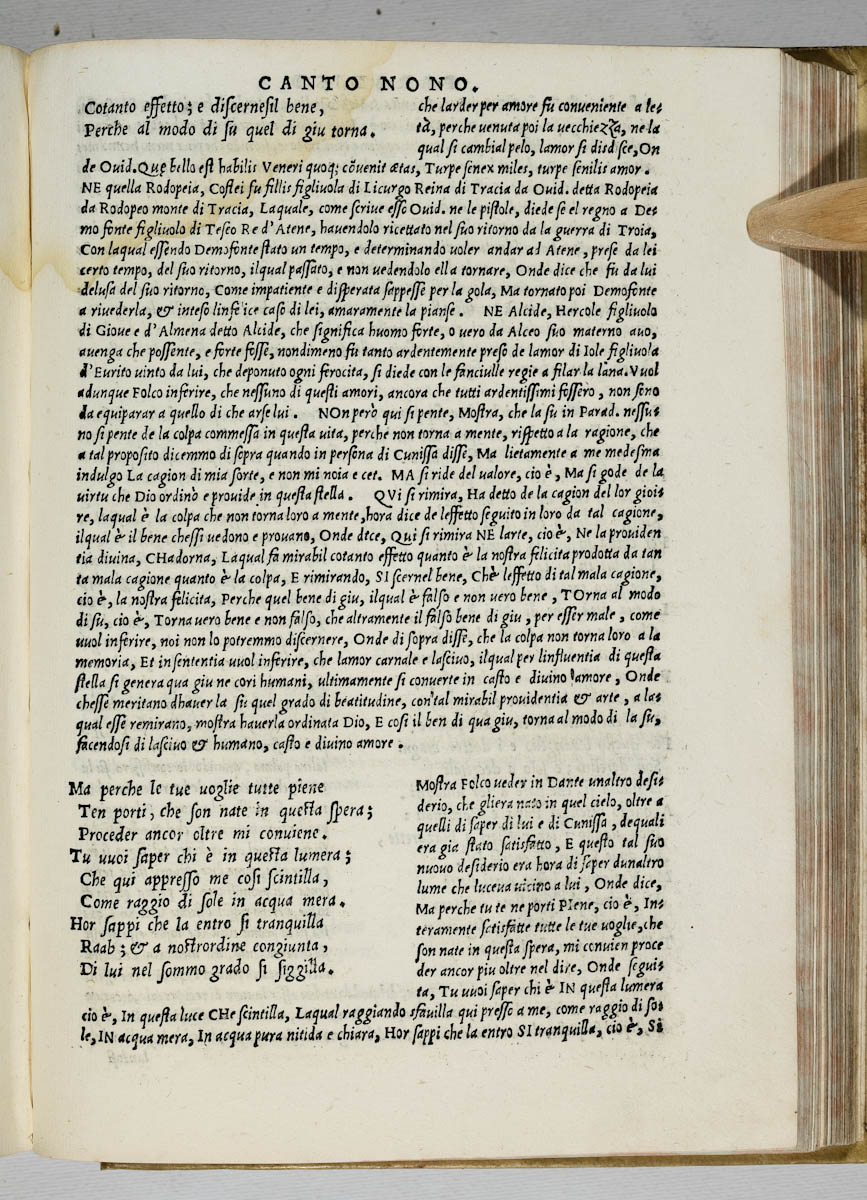 CANTO NONO.
Cotanto effetto; e discernesil bene,
Perche al modo di su quel di giu torna.
che larder per amore fu conueniente a le=
tà, perche uenuta poi la uecchiezza, ne la
qual si cambial pelo, lamor si disdisce, On
de Ouid. Quę bello est habilis Veneri quoq; cōuenit ætas, Turpe senex miles, turpe senilis amor.
NE quella Rodopeia, Costei fu fillis figliuola di Licurgo Reina di Tracia da Ouid. detta Rodopeia
da Rodopeo monte di Tracia, Laquale, come scriue esso Ouid. ne le pistole, diede se el regno a De=
mo fonte figliuolo di Teseo Re d'Atene, hauendolo ricettato nel suo ritorno da la guerra di Troia,
Con laqual essendo Demofonte stato un tempo, e determinando uoler andar ad Atene, prese da lei
certo tempo, del suo ritorno, ilqual passato, e non uedendolo ella tornare, Onde dice che fu da lui
delusa del suo ritorno, Come impatiente e disperata sappesse per la gola, Ma tornato poi Demofonte
a riuederla, & inteso linfelice caso di lei, amaramente la pianse. NE Alcide, Hercole figliuolo
di Gioue e d'Almena detto Alcide, che significa huomo forte, o uero da Alceo suo materno auo,
auenga che possente, e forte fosse, nondimeno fu tanto ardentemente preso de lamor di Iole figliuola
d'Eurito uinto da lui, che deponuto ogni ferocita, si diede con le fanciulle regie a filar la lana. Vuol
adunque Folco inferire, che nessuno di questi amori, ancora che tutti ardentissimi fossero, non sono
da equiparar a quello di che arse lui. NOn però qui si pente, Mostra, che la su in Parad. nessu=
no si pente de la colpa commessa in questa uita, perche non torna a mente, rispetto a la ragione, che
a tal proposito dicemmo di sopra quando in persona di Cunissa disse, Ma lietamente a me medesma
indulgo La cagion di mia sorte, e non mi noia e cet. MA si ride del ualore, cio è, Ma si gode de la
uirtu che Dio ordinò e prouide in questa stella. QVi si rimira, Ha detto de la cagion del lor gioi=
re, laqual è la colpa che non torna loro a mente, hora dice de leffetto seguito in loro da tal cagione,
ilqual è il bene chessi uedono e prouano, Onde dtce, Qui si rimira NE larte, cio è, Ne la prouiden
tia diuina, CHadorna, Laqual fa mirabil cotanto effetto quanto è la nostra felicita prodotta da tan
ta mala cagione quanto è la colpa, E rimirando, SI scernel bene, Chè leffetto di tal mala cagione,
cio è, la nostra felicita, Perche quel bene di giu, ilqual è falso e non uero bene, TOrna al modo
di su, cio è, Torna uero bene e non falso, che altramente il falso bene di giu, per esser male, come
uuol inferire, noi non lo potremmo discernere, Onde di sopra disse, che la colpa non torna loro a la
memoria, Et in sententia uuol inferire, che lamor carnale e lasciuo, ilqual per linfluentia di questa
stella si genera qua giu ne cori humani, ultimamente si conuerte in casto e diuino amore, Onde
chesse meritano dhauer la su quel grado di beatitudine, con tal mirabil prouidentia & arte, a las
qual esse remirano, mostra hauerla ordinata Dio, E cosi il ben di qua giu, torna al modo di la su,
facendosi di lasciuo & humano, casto e diuino amore.
Ma perche le tue uoglie tutte piene
Ten porti, che son nate in questa spera;
Proceder ancor oltre mi conuiene.
Tu uuoi saper chi è in questa lumera;
Che qui appresso me cosi scintilla,
Come raggio di sole in acqua mera.
Hor sappi che la entro si tranquilla
Raab; & a nostrordine congiunta,
Di lui nel sommo grado si siggilla.
Mostra Folco ueder in Dante unaltro desi=
derio, che gliera nato in quel cielo, oltre a
quelli di saper di lui e di Cunissa, dequali
era gia stato satisfatto, E questo tal suo
nuouo desiderio era hora di saper dunaltro
lume che luceua uicino a lui, Onde dice,
Ma perche tu te ne porti PIene, cio è, In=
teramente satisfatte tutte le tue uoglie, che
son nate in questa spera, mi conuien proce
der ancor piu oltre nel dire, Onde segui=
ta, Tu uuoi saper chi è IN questa lumera
cio è, In questa luce CHe scintilla, Laqual raggiando sfauilla qui presso a me, come raggio di so=
le, IN acqua mera, In acqua pura nitida e chiara, Hor sappi che la entro SI tranquilla, cio è, Si